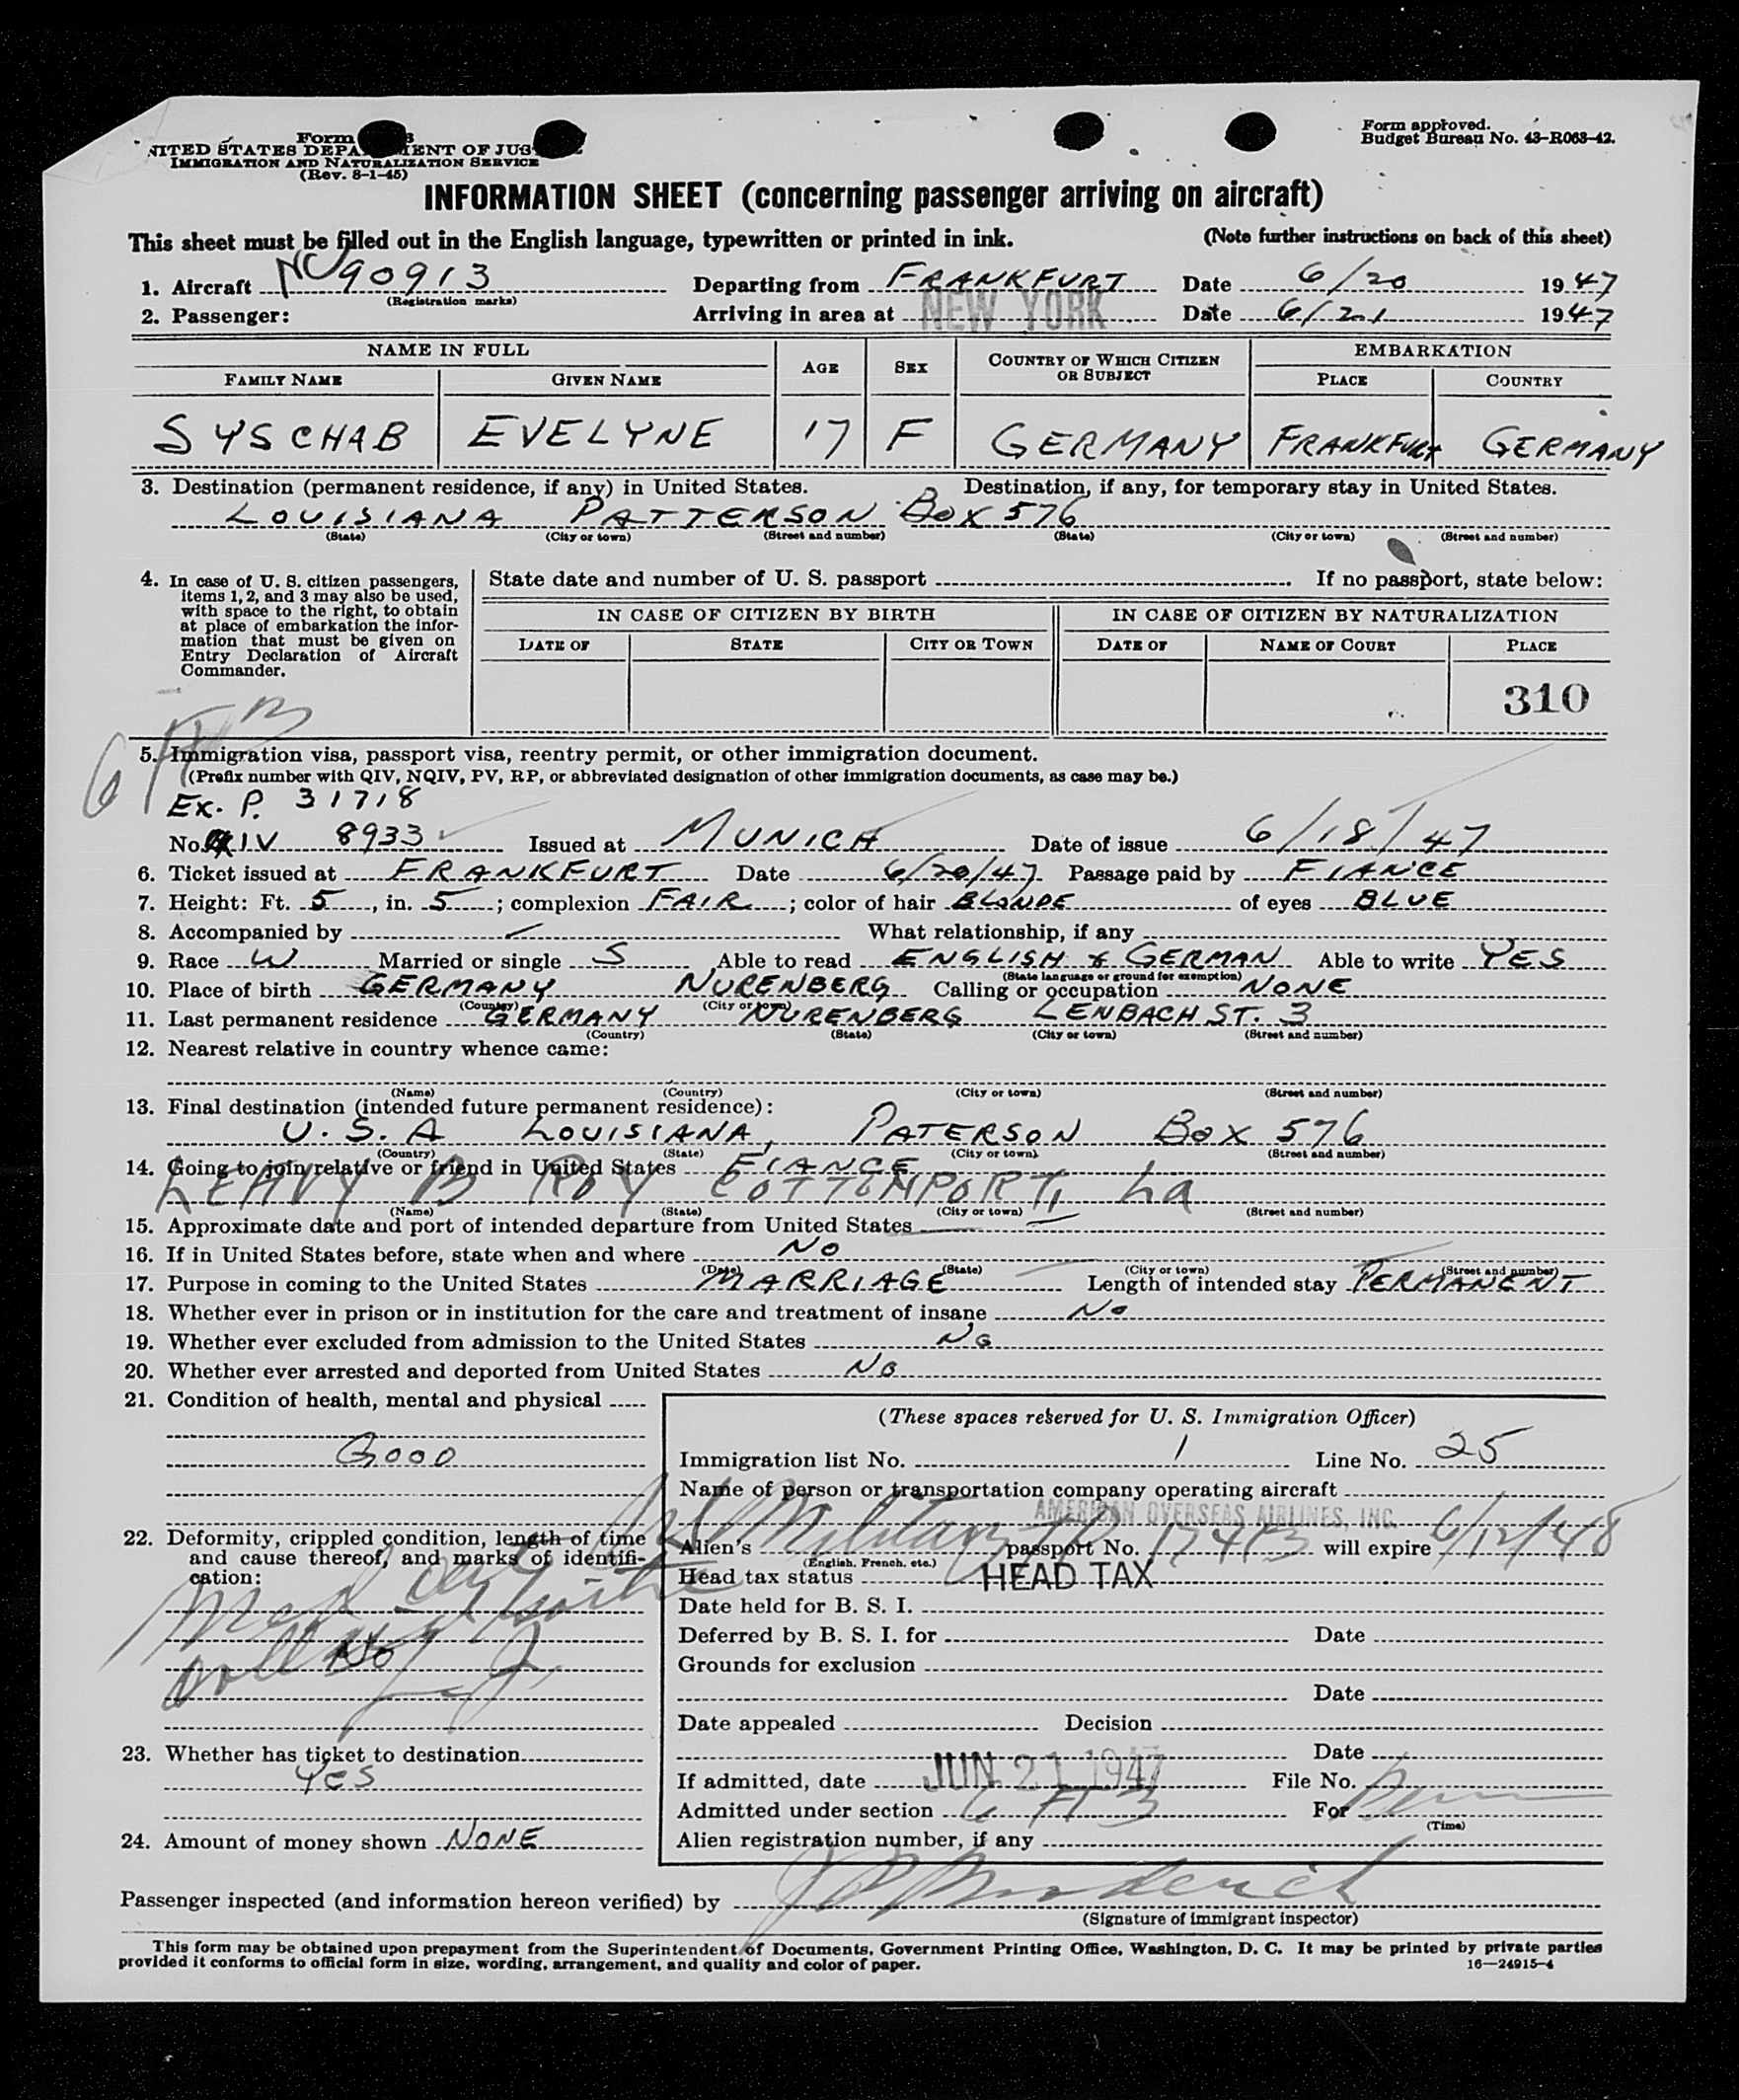 Form
UNITED STATES DEPARTMENT OF JUSTICE
IMMIGRATION AND NATURALIZATION SERVICE
(Rev. 8-1-45)
Form approved.
Budget Bureau No. 43-R063-42.
INFORMATION SHEET (concerning passenger arriving on aircraft)
This sheet must be filled out in the English language, typewritten or printed in ink. (Note further instructions on back of this sheet)
1. Aircraft NC 90913 (Registration marks) Departing from FRANKFURT Date 6/20 1947
2. Passenger: Arriving in area at NEW YORK Date 6/21 1947
NAME IN FULL AGE SEX COUNTRY OF WHICH CITIZEN OR SUBJECT EMBARKATION
FAMILY NAME GIVEN NAME PLACE COUNTRY
SYSCHAB EVELYNE 17 F GERMANY FRANKFURT GERMANY
3. Destination (permanent residence, if any) in United States. Destination, if any, for temporary stay in United States.
LOUISIANA PATTERSON BOX 576
(State) (City or town) (Street and number) (State) (City or town) (Street and number)
4. In case of U. S. citizen passengers, items 1, 2, and 3 may also be used, with space to the right, to obtain at place of embarkation the information that must be given on Entry Declaration of Aircraft Commander.
State date and number of U. S. passport If no passport, state below:
IN CASE OF CITIZEN BY BIRTH IN CASE OF CITIZEN BY NATURALIZATION
DATE OF STATE CITY OR TOWN DATE OF NAME OF COURT PLACE
310
5. Immigration visa, passport visa, reentry permit, or other immigration document.
(Prefix number with QIV, NQIV, PV, RP, or abbreviated designation of other immigration documents, as case may be.)
EX. P. 31718
No. QIV 8933 Issued at MUNICH Date of issue 6/18/47
6. Ticket issued at FRANKFURT Date 6/20/47 Passage paid by FIANCE
7. Height: Ft. 5, in. 5; complexion FAIR; color of hair BLONDE of eyes BLUE
8. Accompanied by What relationship, if any
9. Race W Married or single S Able to read ENGLISH & GERMAN Able to write YES
(State language or ground for exemption)
10. Place of birth GERMANY NURENBERG Calling or occupation NONE
(Country) (City or town)
11. Last permanent residence GERMANY NURENBERG LENBACH ST. 3
(Country) (State) (City or town) (Street and number)
12. Nearest relative in country whence came:
(Name) (Country) (City or town) (Street and number)
13. Final destination (intended future permanent residence):
U.S.A LOUISIANA, PATERSON BOX 576
(Country) (State) (City or town) (Street and number)
14. Going to join relative or friend in United States FIANCE
LEAVY B ROY COTTONPORT, La
(Name) (State) (City or town) (Street and number)
15. Approximate date and port of intended departure from United States —
16. If in United States before, state when and where NO
(Date) (State) (City or town) (Street and number)
17. Purpose in coming to the United States MARRIAGE Length of intended stay PERMANENT
18. Whether ever in prison or in institution for the care and treatment of insane NO
19. Whether ever excluded from admission to the United States NO
20. Whether ever arrested and deported from United States NO
21. Condition of health, mental and physical
GOOD
22. Deformity, crippled condition, length of time and cause thereof, and marks of identification:
Med
NO
23. Whether has ticket to destination
YES
24. Amount of money shown NONE
(These spaces reserved for U. S. Immigration Officer)
Immigration list No. 1 Line No. 25
Name of person or transportation company operating aircraft
AMERICAN OVERSEAS AIRLINES, INC.
Alien's Military (English, French, etc.) passport No. 17413 will expire 6/12/48
Head tax status HEAD TAX
Date held for B. S. I.
Deferred by B. S. I. for Date
Grounds for exclusion
Date
Date appealed Decision
Date
If admitted, date JUN 21 1947 File No.
Admitted under section 6 A 3 For Perm
(Time)
Alien registration number, if any
Passenger inspected (and information hereon verified) by
(Signature of immigrant inspector)
This form may be obtained upon prepayment from the Superintendent of Documents, Government Printing Office, Washington, D. C. It may be printed by private parties
provided it conforms to official form in size, wording, arrangement, and quality and color of paper.
16—24915-4